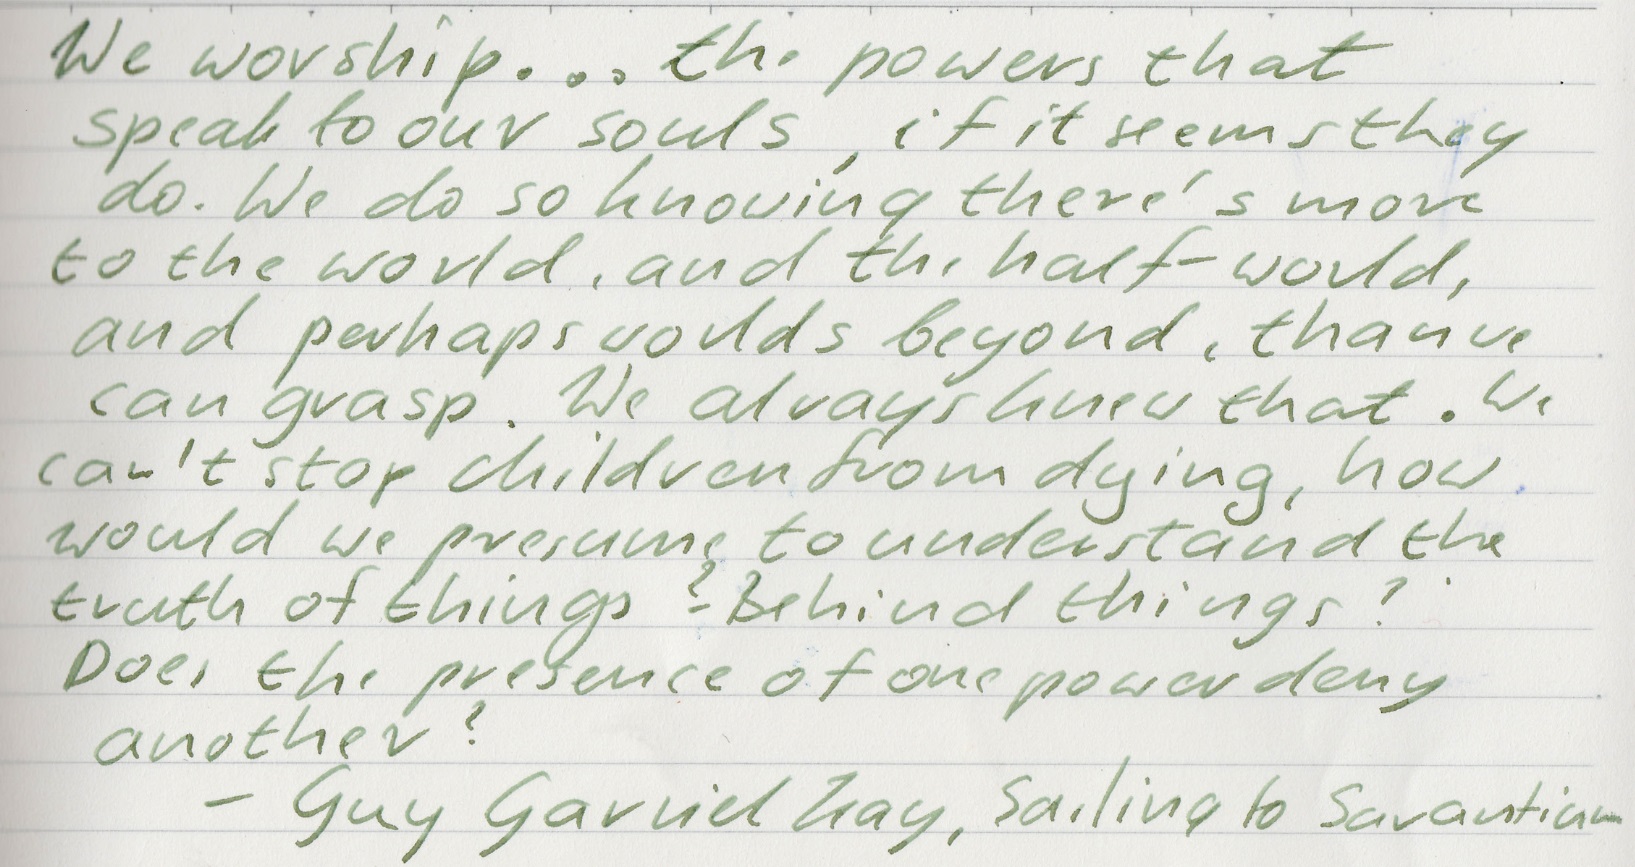 We worship... the powers that
speak to our souls, if it seems they
do. We do so knowing there's more
to the world, and the half-world,
and perhaps worlds beyond, than we
can grasp. We always knew that. We
can't stop children from dying, how
would we presume to understand the
truth of things? Behind things?
Does the presence of one power deny
another?
- Guy Gavriel Kay, Sailing to Sarantium